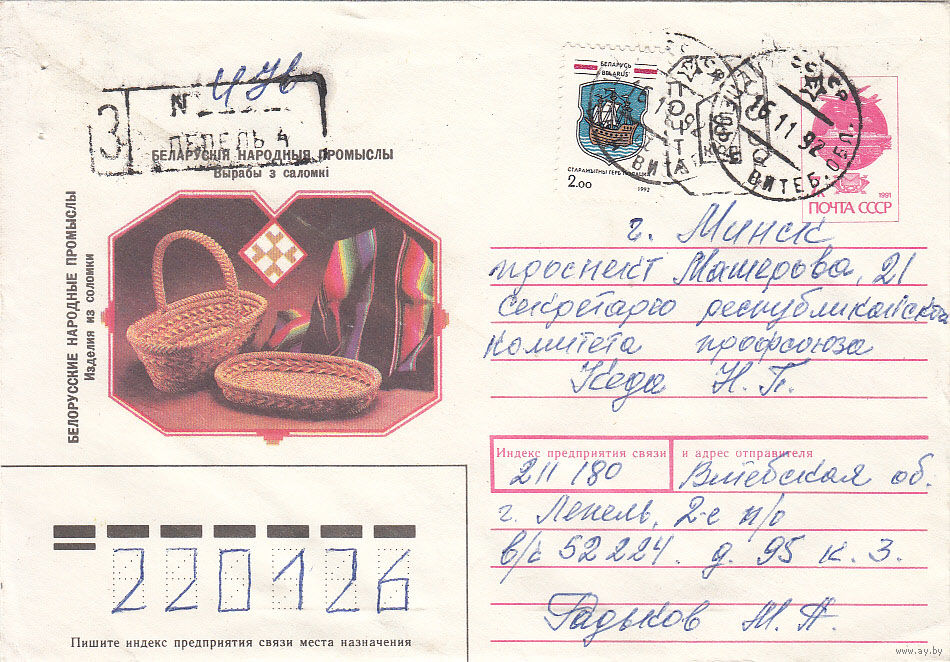 N 476
З
ЛЕПЕЛЬ 4
БЕЛАРУСКІЯ НАРОДНЫЯ ПРОМЫСЛЫ
Вырабы з саломкі
БЕЛОРУССКИЕ НАРОДНЫЕ ПРОМЫСЛЫ
Изделия из соломки
БЕЛАРУСЬ
BELARUS
СТАРАЖЫТНЫ ГЕРБ ПОЛАЦКА
2.00
1992
16 11 92
ВИТЕБ. ОБЛ.
1991
ПОЧТА СССР
г. Минск
проспект Машерова, 21
секретарю республиканского
комитета профсоюза
Кеда Н. П.
Индекс предприятия связи и адрес отправителя
211180 Витебская об.
г. Лепель, 2-е п/о
в/ч 52224 д. 95 к. 3.
Радьков М. А.
220126
Пишите индекс предприятия связи места назначения
www.ay.by